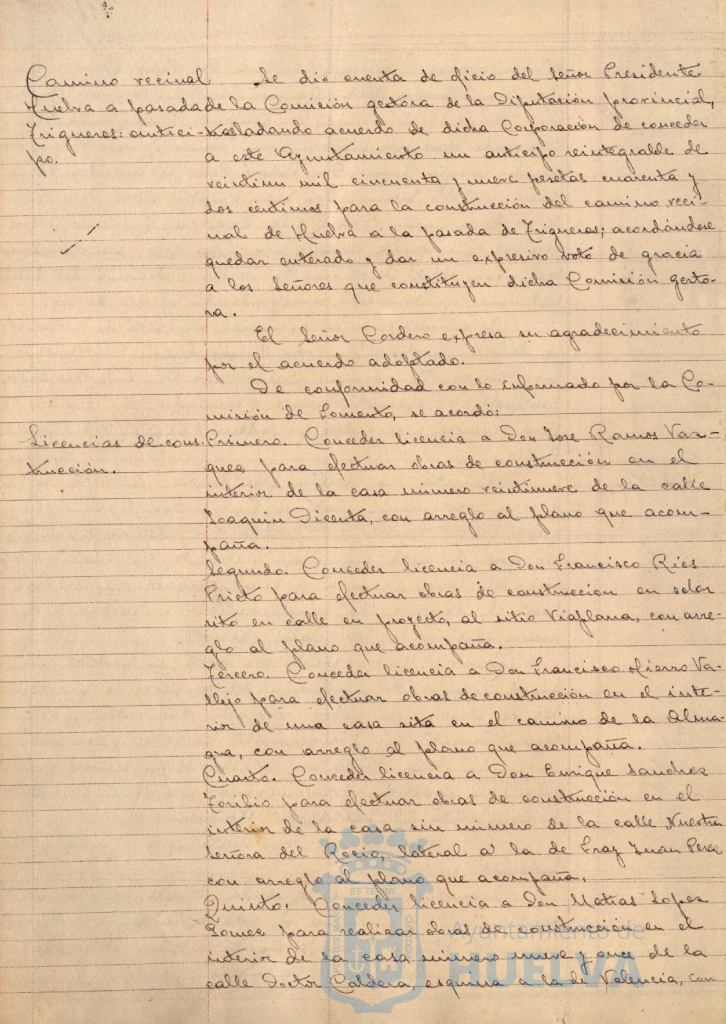 Camino vecinal
Huelva a pasada
Trigueros: antici-
po.
Se dió cuenta de oficio del Señor Presidente
de la Comisión gestora de la Diputación provincial,
trasladando acuerdo de dicha Corporación de conceder
a este Ayuntamiento un anticipo reintegrable de
veintiun mil cincuenta y nueve pesetas cuarenta y
dos céntimos para la construcción del camino veci-
nal de Huelva a la pasada de Trigueros; acordándose
quedar enterado y dar un expresivo voto de gracia
a los Señores que constituyen dicha Comisión gesto-
ra.
El Señor Cordero expresa su agradecimiento
por el acuerdo adoptado.
De conformidad con lo informado por la Co-
misión de Fomento, se acordó:
Licencias de cons-
trucción.
Primero. Conceder licencia a Don Jose Ramos Vaz-
quez para efectuar obras de construcción en el
interior de la casa número veintinueve de la calle
Joaquin Dicenta, con arreglo al plano que acom-
paña.
Segundo. Conceder licencia a Don Francisco Rios
Prieto para efectuar obras de construccion en solar
sito en calle en proyecto, al sitio Viaplana, con arre-
glo al plano que acompaña.
Tercero. Conceder licencia a Don Francisco Hierro Va-
llejo para efectuar obras de construcción en el inte-
rior de una casa sita en el camino de la Alma-
gra, con arreglo al plano que acompaña.
Cuarto. Conceder licencia a Don Enrique Sanchez
Toribio para efectuar obras de construcción en el
interior de la casa sin número de la calle Nuestra
Señora del Rocio, lateral a la de Fray Juan Perez
con arreglo al plano que acompaña.
Quinto. Conceder licencia a Don Matias Lopez
Gomez para realizar obras de construcción en el
interior de la casa número nueve y once de la
calle Doctor Caldera, esquina a la de Valencia, con
Ayuntamiento de
HUELVA